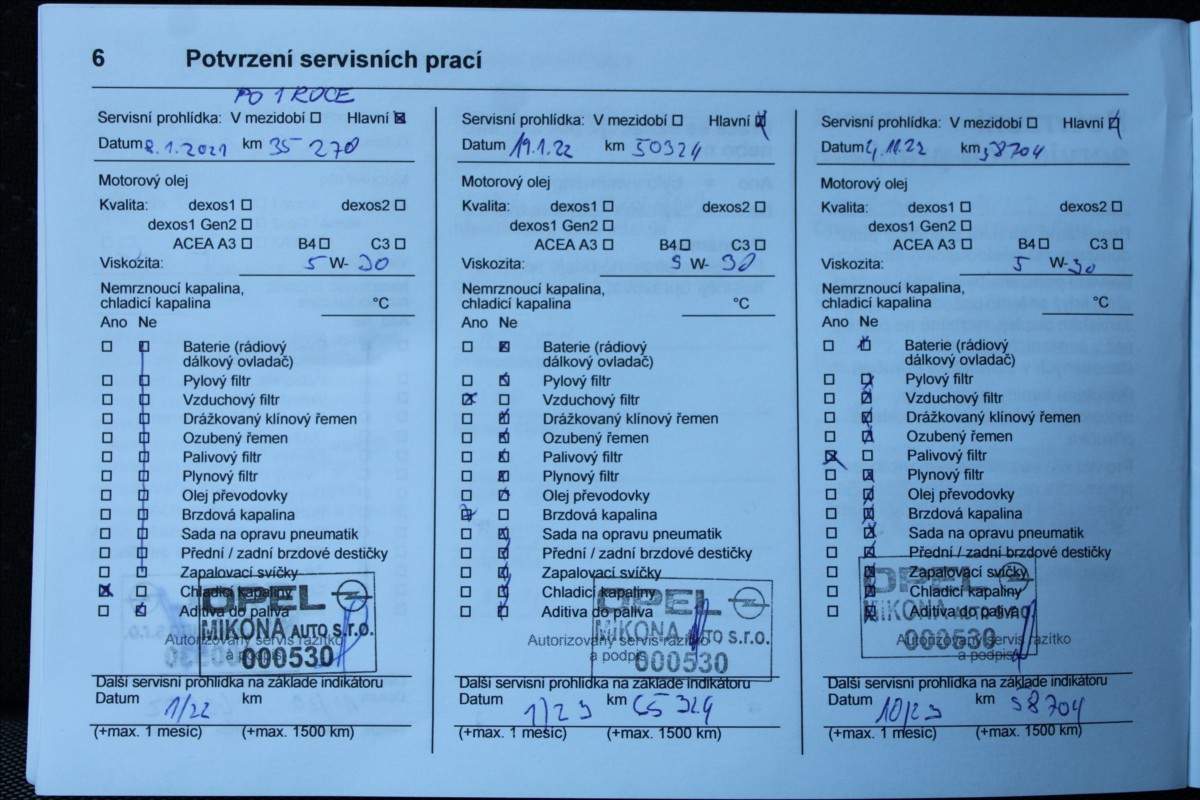 6 Potvrzení servisních prací
PO 1 ROCE
Servisní prohlídka: V mezidobí Hlavní
Datum 8.1.2021 km 35 270
Motorový olej
Kvalita: dexos1 dexos2
dexos1 Gen2
ACEA A3 B4 C3
Viskozita: 5 W- 30
Nemrznoucí kapalina,
chladicí kapalina °C
Ano Ne
Baterie (rádiový
dálkový ovladač)
Pylový filtr
Vzduchový filtr
Drážkovaný klínový řemen
Ozubený řemen
Palivový filtr
Plynový filtr
Olej převodovky
Brzdová kapalina
Sada na opravu pneumatik
Přední / zadní brzdové destičky
Zapalovací svíčky
Chladicí kapaliny
Aditiva do paliva
OPEL
MIKONA AUTO s.r.o.
000530
Autorizovaný servis razítko
a podpis
Další servisní prohlídka na základě indikátoru
Datum 1/22 km
(+max. 1 měsíc) (+max. 1500 km)
Servisní prohlídka: V mezidobí Hlavní
Datum 19.1.22 km 50324
Motorový olej
Kvalita: dexos1 dexos2
dexos1 Gen2
ACEA A3 B4 C3
Viskozita: 5 W- 30
Nemrznoucí kapalina,
chladicí kapalina °C
Ano Ne
Baterie (rádiový
dálkový ovladač)
Pylový filtr
Vzduchový filtr
Drážkovaný klínový řemen
Ozubený řemen
Palivový filtr
Plynový filtr
Olej převodovky
Brzdová kapalina
Sada na opravu pneumatik
Přední / zadní brzdové destičky
Zapalovací svíčky
Chladicí kapaliny
Aditiva do paliva
OPEL
MIKONA AUTO s.r.o.
000530
Autorizovaný servis razítko
a podpis
Další servisní prohlídka na základě indikátoru
Datum 1/23 km 65 324
(+max. 1 měsíc) (+max. 1500 km)
Servisní prohlídka: V mezidobí Hlavní
Datum 4.11.22 km 58704
Motorový olej
Kvalita: dexos1 dexos2
dexos1 Gen2
ACEA A3 B4 C3
Viskozita: 5 W- 30
Nemrznoucí kapalina,
chladicí kapalina °C
Ano Ne
Baterie (rádiový
dálkový ovladač)
Pylový filtr
Vzduchový filtr
Drážkovaný klínový řemen
Ozubený řemen
Palivový filtr
Plynový filtr
Olej převodovky
Brzdová kapalina
Sada na opravu pneumatik
Přední / zadní brzdové destičky
Zapalovací svíčky
Chladicí kapaliny
Aditiva do paliva
OPEL
MIKONA AUTO s.r.o.
000530
Autorizovaný servis razítko
a podpis
Další servisní prohlídka na základě indikátoru
Datum 10/23 km 58704
(+max. 1 měsíc) (+max. 1500 km)